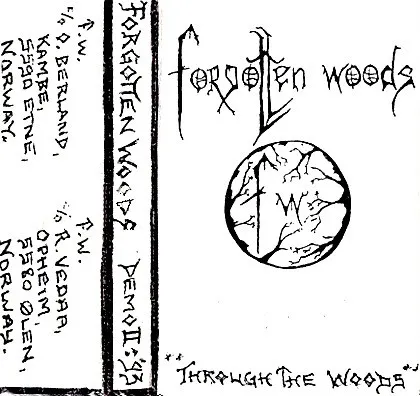 F.W.
c/o O. BERLAND,
KAMBE,
5590 ETNE,
NORWAY.
F.W.
c/o R. VEDAA,
OPHEIM,
5580 ØLEN,
NORWAY.
FORGOTTEN WOODS DEMO II: '93
forgotten woods
FW
"THROUGH THE WOODS"